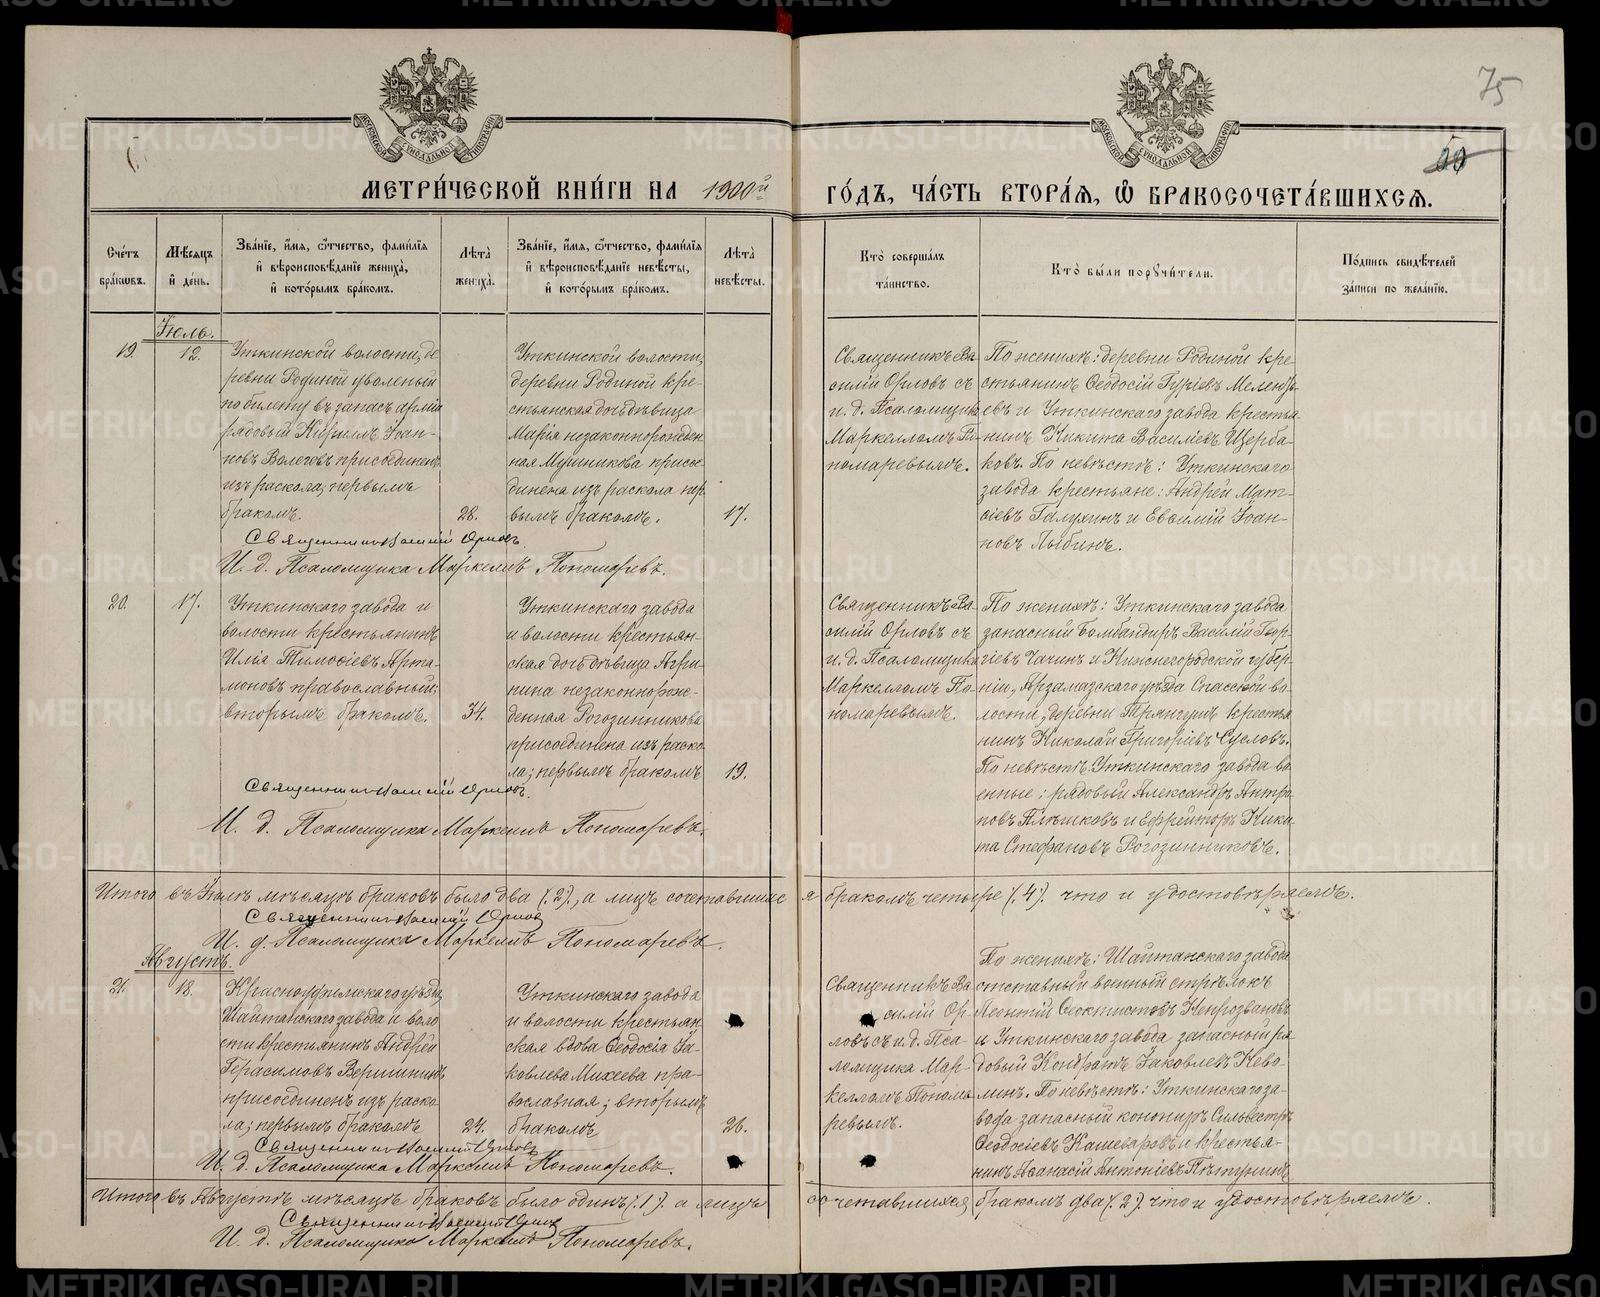 75
60
МОСКОВСКОЙ СѴНОДАЛЬНОЙ ТИПОГРАФIИ
МОСКОВСКОЙ СѴНОДАЛЬНОЙ ТИПОГРАФIИ
МЕТРИ́ЧЕСКОЙ КНИ́ГИ НА 1900й ГО́ДЪ, ЧА́СТЬ ВТОРА́Я, Ѡ БРАКОСОЧЕТА́ВШИХСЯ.
Сче́тъ бра́кѡвъ.
Мѣ́сяцъ и҆ де́нь.
Зва́нїе, и҆́мя, ѻ҆́тчество, фами́лїя и҆ вѣроисповѣ́данїе жениха̀, и҆ кото́рымъ бра́комъ.
Лѣ́та жениха̀.
Зва́нїе, и҆́мя, ѻ҆́тчество, фами́лїя и҆ вѣроисповѣ́данїе невѣ́сты, и҆ кото́рымъ бра́комъ.
Лѣ́та невѣ́сты.
Кто̀ соверша́лъ та́инство.
Кто̀ бы́ли порꙋчи́тели.
По́дпись свидѣ́телей за́писи по жела́нїю.
Іюль.
19.
12.
Уткинской волости, де
ревни Родиной уволеный
по билету въ запасъ арміи
рядовый Кирилъ Іоан-
новъ Волеговъ присоединенъ
изъ раскола; первымъ
бракомъ.
28.
Уткинской волости,
деревни Родиной кре-
стьянская дочь дѣвица
Марія незаконнорожден
ная Мушникова присое
динена изъ раскола пер
вымъ бракомъ.
17.
Священникъ Ва
силій Орловъ съ
и. д. Псаломщика
Маркелломъ По-
номаревымъ.
По женихѣ: деревни Родиной кре-
стьянинъ Ѳеодосій Гуріевъ Меленть
евъ и Уткинскаго завода крестья
нинъ Никита Василіевъ Щерба-
ковъ. По невѣстѣ: Уткинскаго
завода крестьяне: Андрей Мат-
ѳіевъ Галухинъ и Евѳимій Іоан-
новъ Лыбинъ.
Священникъ Василій Орловъ
И. д. Псаломщика Маркеллъ Пономаревъ.
20.
17.
Уткинскаго завода и
волости крестьянинъ
Илія Тимоѳіевъ Арта-
моновъ православный;
вторымъ бракомъ.
34.
Уткинскаго завода
и волости крестьян-
ская дочь дѣвица Агри-
пина незаконнорож-
денная Рогозинникова
присоединена изъ раско
ла; первымъ бракомъ
19.
Священникъ Ва-
силій Орловъ съ
и. д. Псаломщика
Маркелломъ По-
номаревымъ.
По женихѣ: Уткинскаго завода
запасный бомбандиръ Василій Геор-
гіевъ Чачинъ и Нижнегородской губер-
ніи, Арзамазскаго уѣзда Спасской во-
лости, деревни Трянгушъ крестья
нинъ Николай Григоріевъ Сусловъ.
По невѣстѣ: Уткинскаго завода во
енные: рядовый Александръ Антро
повъ Плѣшковъ и Ефрейторъ Ники
та Стефановъ Рогозинниковъ.
Священникъ Василій Орловъ.
И. д. Псаломщика Маркеллъ Пономаревъ.
Итого въ Іюлѣ мѣсяцѣ браковъ было два (2), а лицъ сочетавшихся бракомъ четыре (4). что и удостовѣряемъ.
Священникъ Василій Орловъ
И. д. Псаломщика Маркеллъ Пономаревъ.
Августъ.
21.
18.
Красноуфимскаго уѣзда
Шайтанскаго завода и воло
сти крестьянинъ Андрей
Герасимовъ Вершининъ
присоединенъ изъ раско-
ла; первымъ бракомъ
24.
Уткинскаго завода
и волости крестьян
ская вдова Ѳеодосія Іа-
ковлева Михеева пра-
вославная; вторымъ
бракомъ
26.
Священникъ Ва
силій Ор-
ловъ съ и. д. Пса-
ломщика Мар-
келломъ Понома
ревымъ.
По женихѣ: Шайтанскаго завода
отставный военный стрѣлокъ
Леонтій Ѳеоктистовъ Непрозвановъ
и Уткинскаго завода запасный ря
довый Кондратъ Іаковлевъ Нево
линъ. По невѣстѣ: Уткинскаго за-
вода запасный конониръ Сильвестръ
Ѳеодосіевъ Кашеваровъ и крестья-
нинъ Аѳанасій Антоніевъ Пѣтунинъ
Священникъ Василій Орловъ
И. д. Псаломщика Маркеллъ Пономаревъ.
Итого въ Августѣ мѣсяцѣ браковъ было одинъ (1). а лицъ сочетавшихся бракомъ два (2). что и удостовѣряемъ.
Священникъ Василій Орловъ
И. д. Псаломщика Маркеллъ Пономаревъ.
METRIKI.GASO-URAL.RU